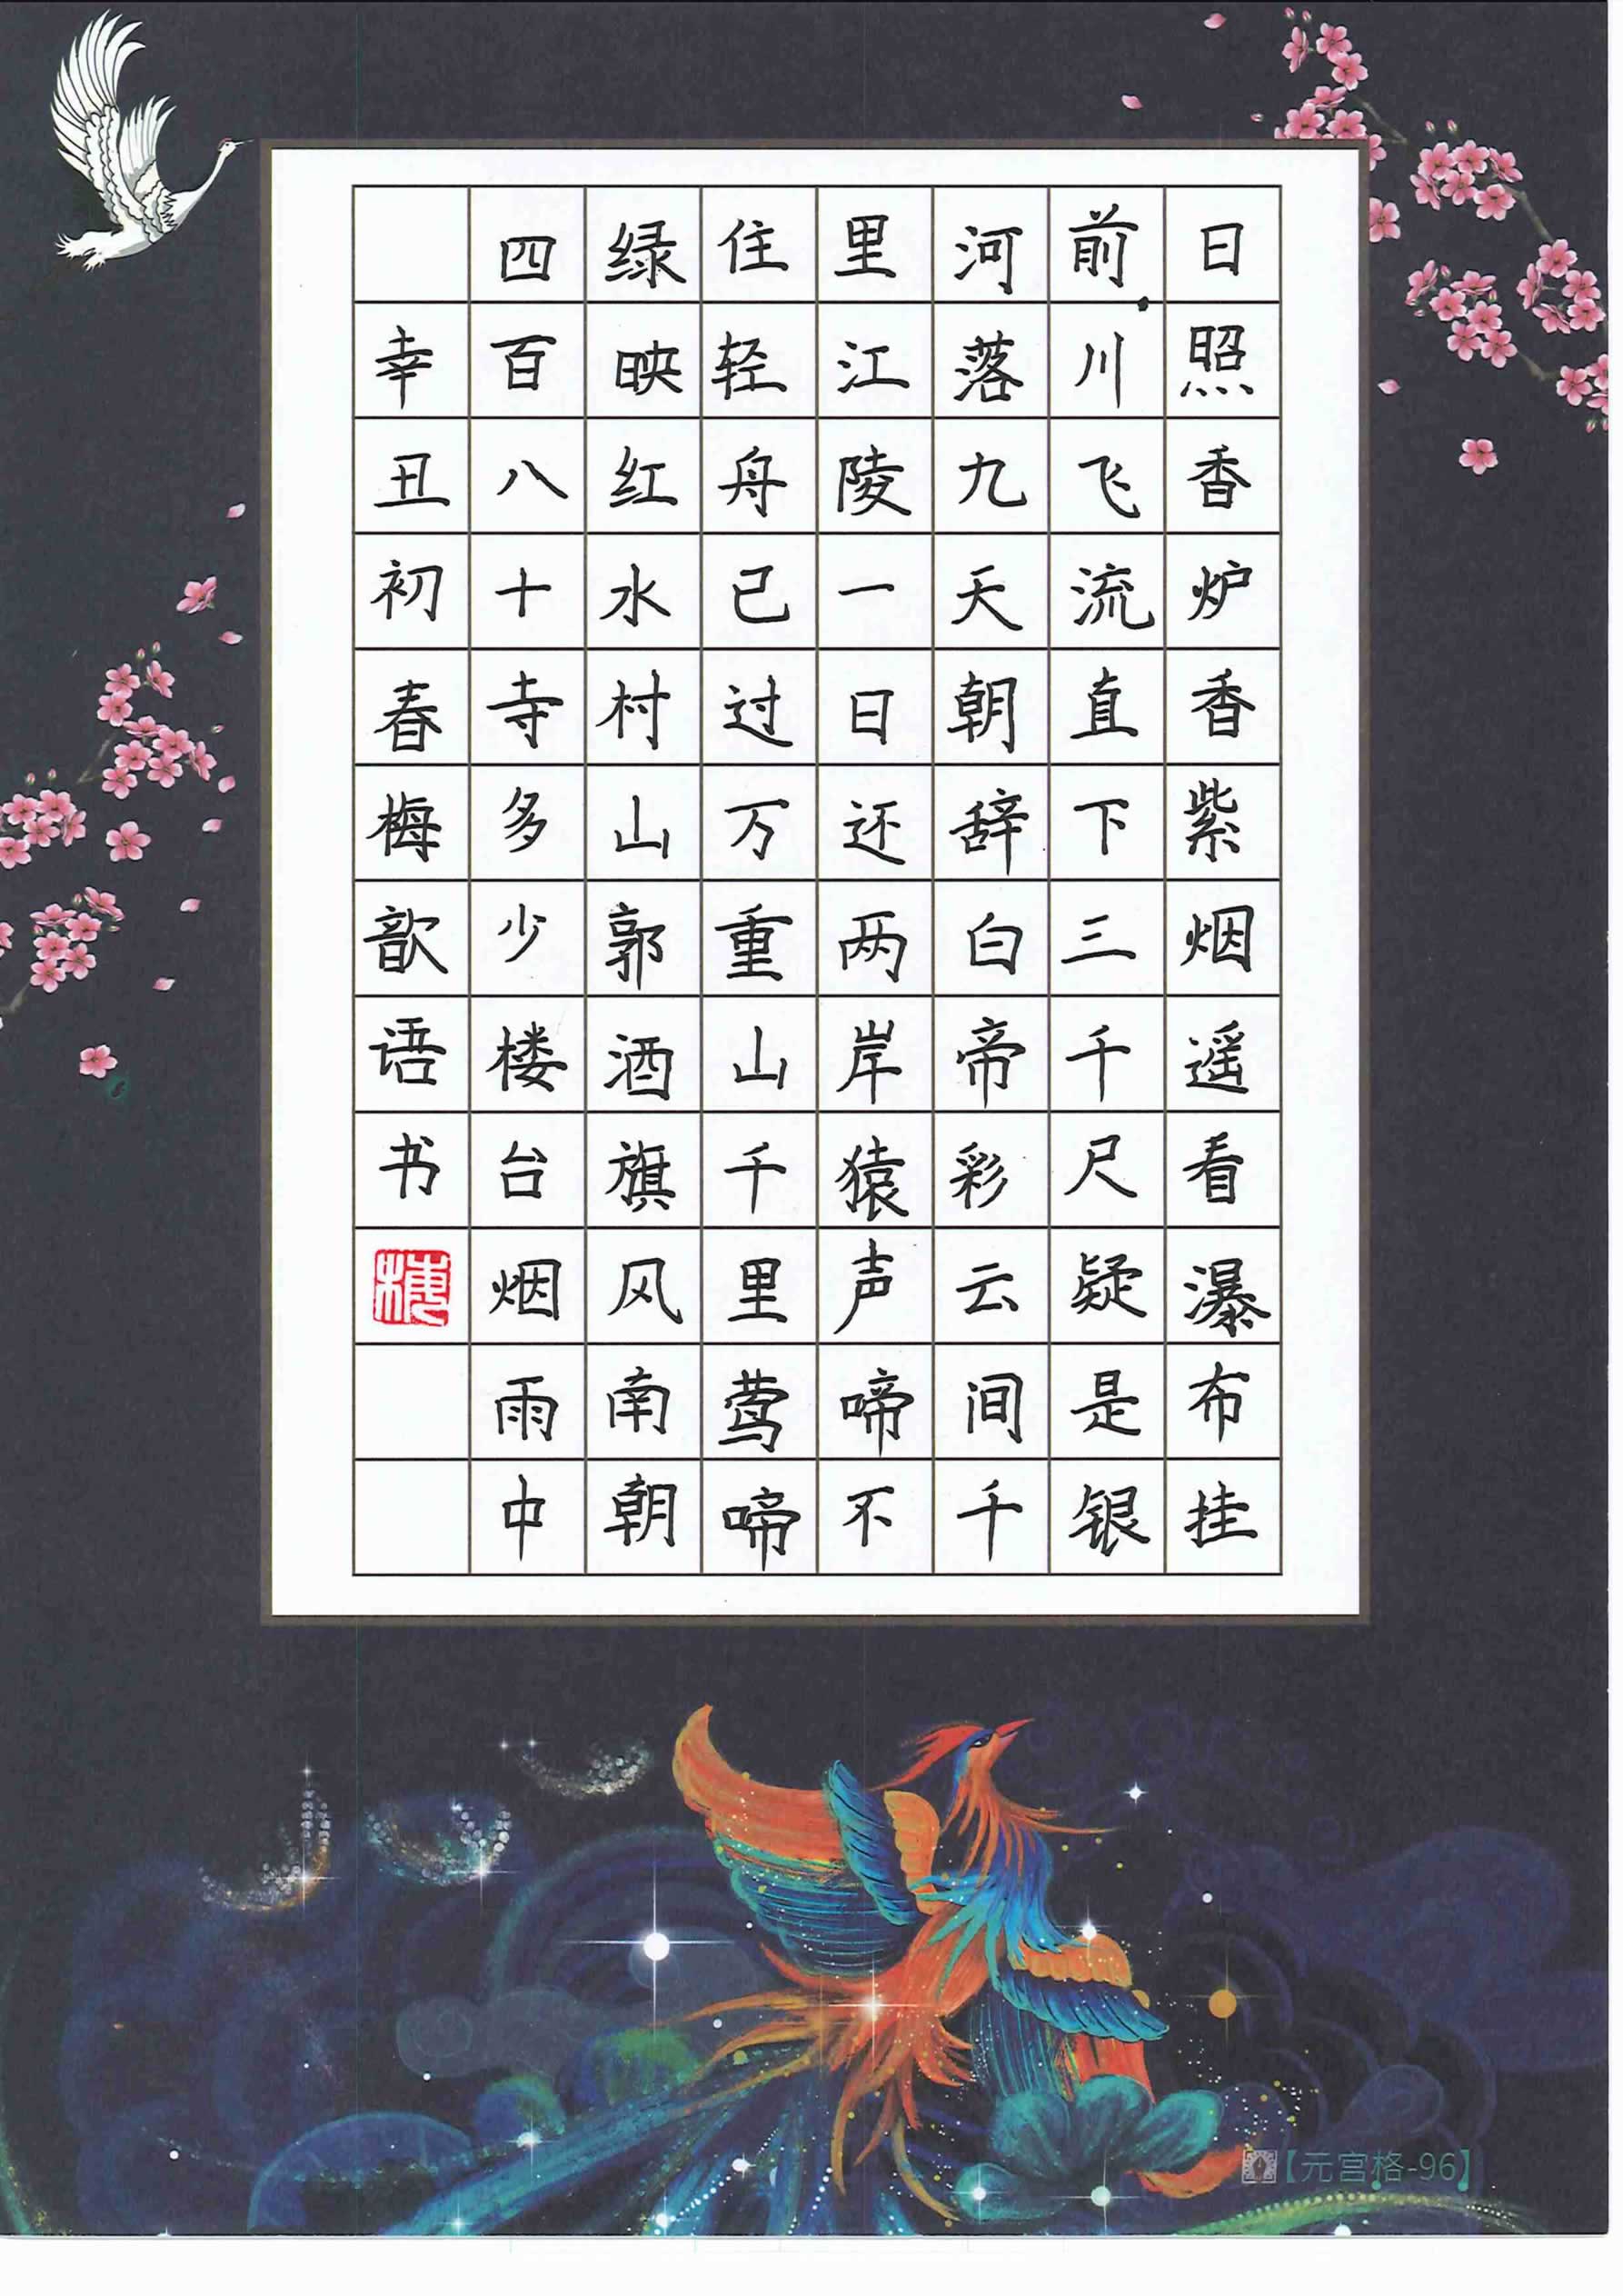 日照香炉香紫烟遥看瀑布挂
前川飞流直下三千尺疑是银
河落九天朝辞白帝彩云间千
里江陵一日还两岸猿声啼不
住轻舟已过万重山千里莺啼
绿映红水村山郭酒旗风南朝
四百八十寺多少楼台烟雨中
幸丑初春梅歆语书
【元宫格-96】